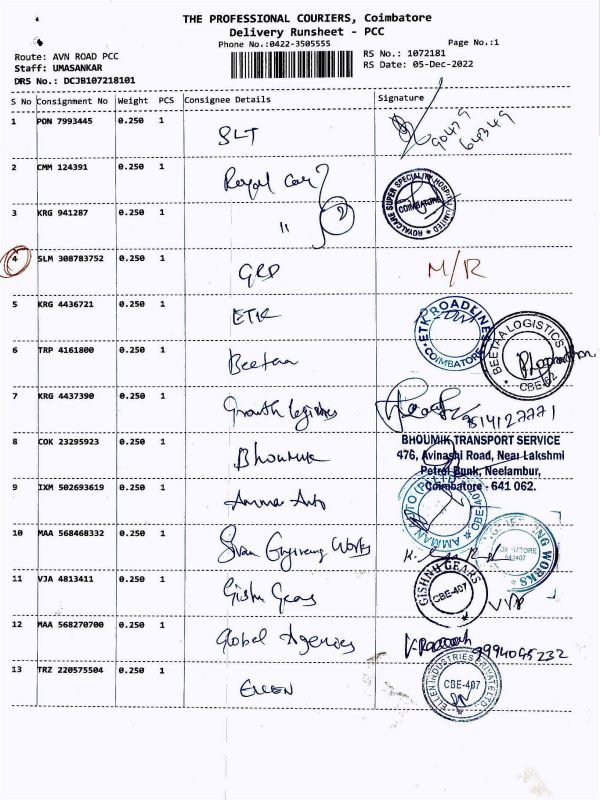 THE PROFESSIONAL COURIERS, Coimbatore
Delivery Runsheet - PCC
Phone No.:0422-3505555
Page No.:1
Route: AVN ROAD PCC
RS No.: 1072181
Staff: UMASANKAR
RS Date: 05-Dec-2022
DRS No.: DCJB107218101
S No Consignment No Weight PCS Consignee Details Signature
1 PON 7993445 0.250 1 SLT 90479 64349
2 CMM 124391 0.250 1 Royal Care
ROYALCARE SUPER SPECIALITY HOSPITAL LIMITED COIMBATORE
3 KRG 941287 0.250 1 "
4 SLM 308783752 0.250 1 GRD M/R
5 KRG 4436721 0.250 1 ETK
ETK ROADLINES COIMBATORE
6 TRP 4161800 0.250 1 Beetaa
BEETHA LOGISTICS CBE-62
7 KRG 4437390 0.250 1 Growth Logistics 9514127771
8 COK 23295923 0.250 1 Bhoumik
BHOUMIK TRANSPORT SERVICE
476, Avinashi Road, Near Lakshmi
Petrol Bunk, Neelambur,
Coimbatore - 641 062.
9 IXM 502693619 0.250 1 Amma Auto
AMMAN AUTO CBE-407
10 MAA 568468332 0.250 1 Sivan Engineering Works
COIMBATORE 641407 WORKS
11 VJA 4813411 0.250 1 Gishu Gears
GISHNU GEARS CBE-407
12 MAA 568270700 0.250 1 Global Agencies 9994095232
13 TRZ 220575504 0.250 1 ELLEN
ELLEN INDUSTRIES PRIVATE LTD CBE-407